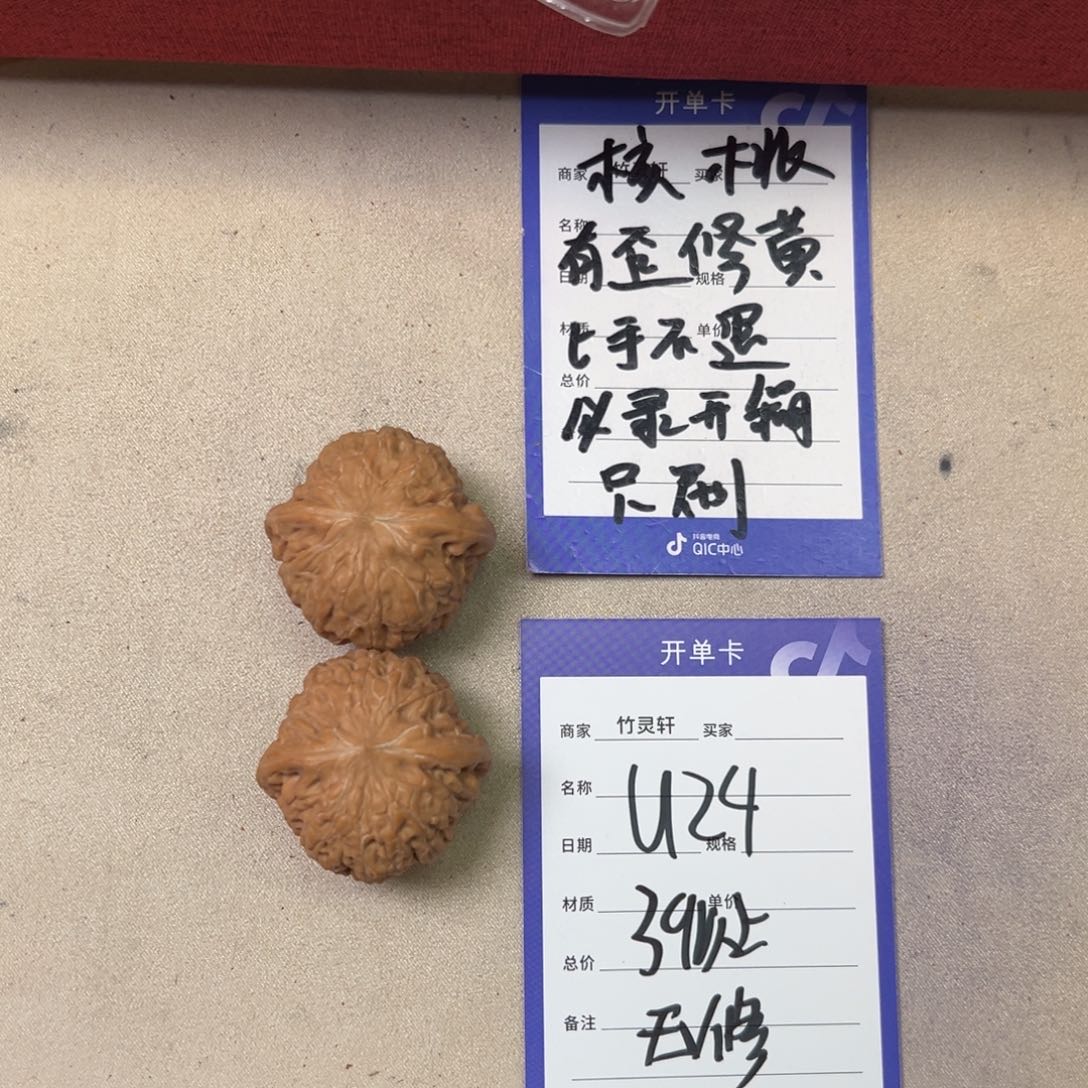 开单卡
商家 竹灵轩 买家
核桃
名称
有歪修黄
日期 规格
材质 单价
上手不退
总价
必录开箱
只刷
抖音电商
QIC中心
开单卡
商家 竹灵轩 买家
名称
U24
日期 规格
材质 单价
39以上
总价
备注
无修